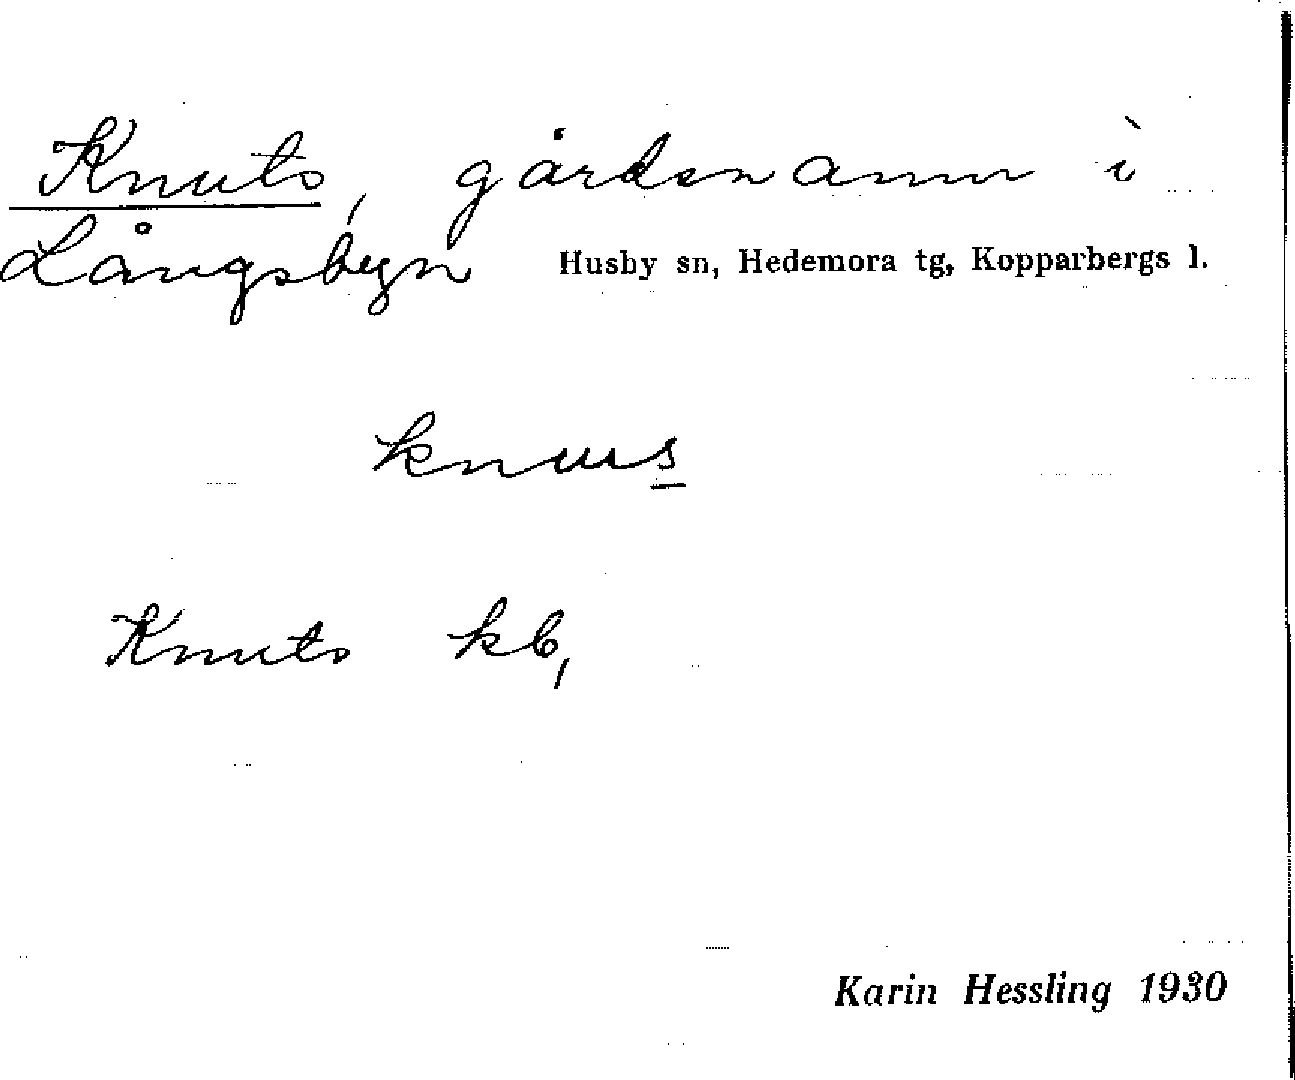 Knuts, gårdsnamn i
Långsbyn Husby sn, Hedemora tg, Kopparbergs l.
knuus
Knuts kb,
Karin Hessling 1930